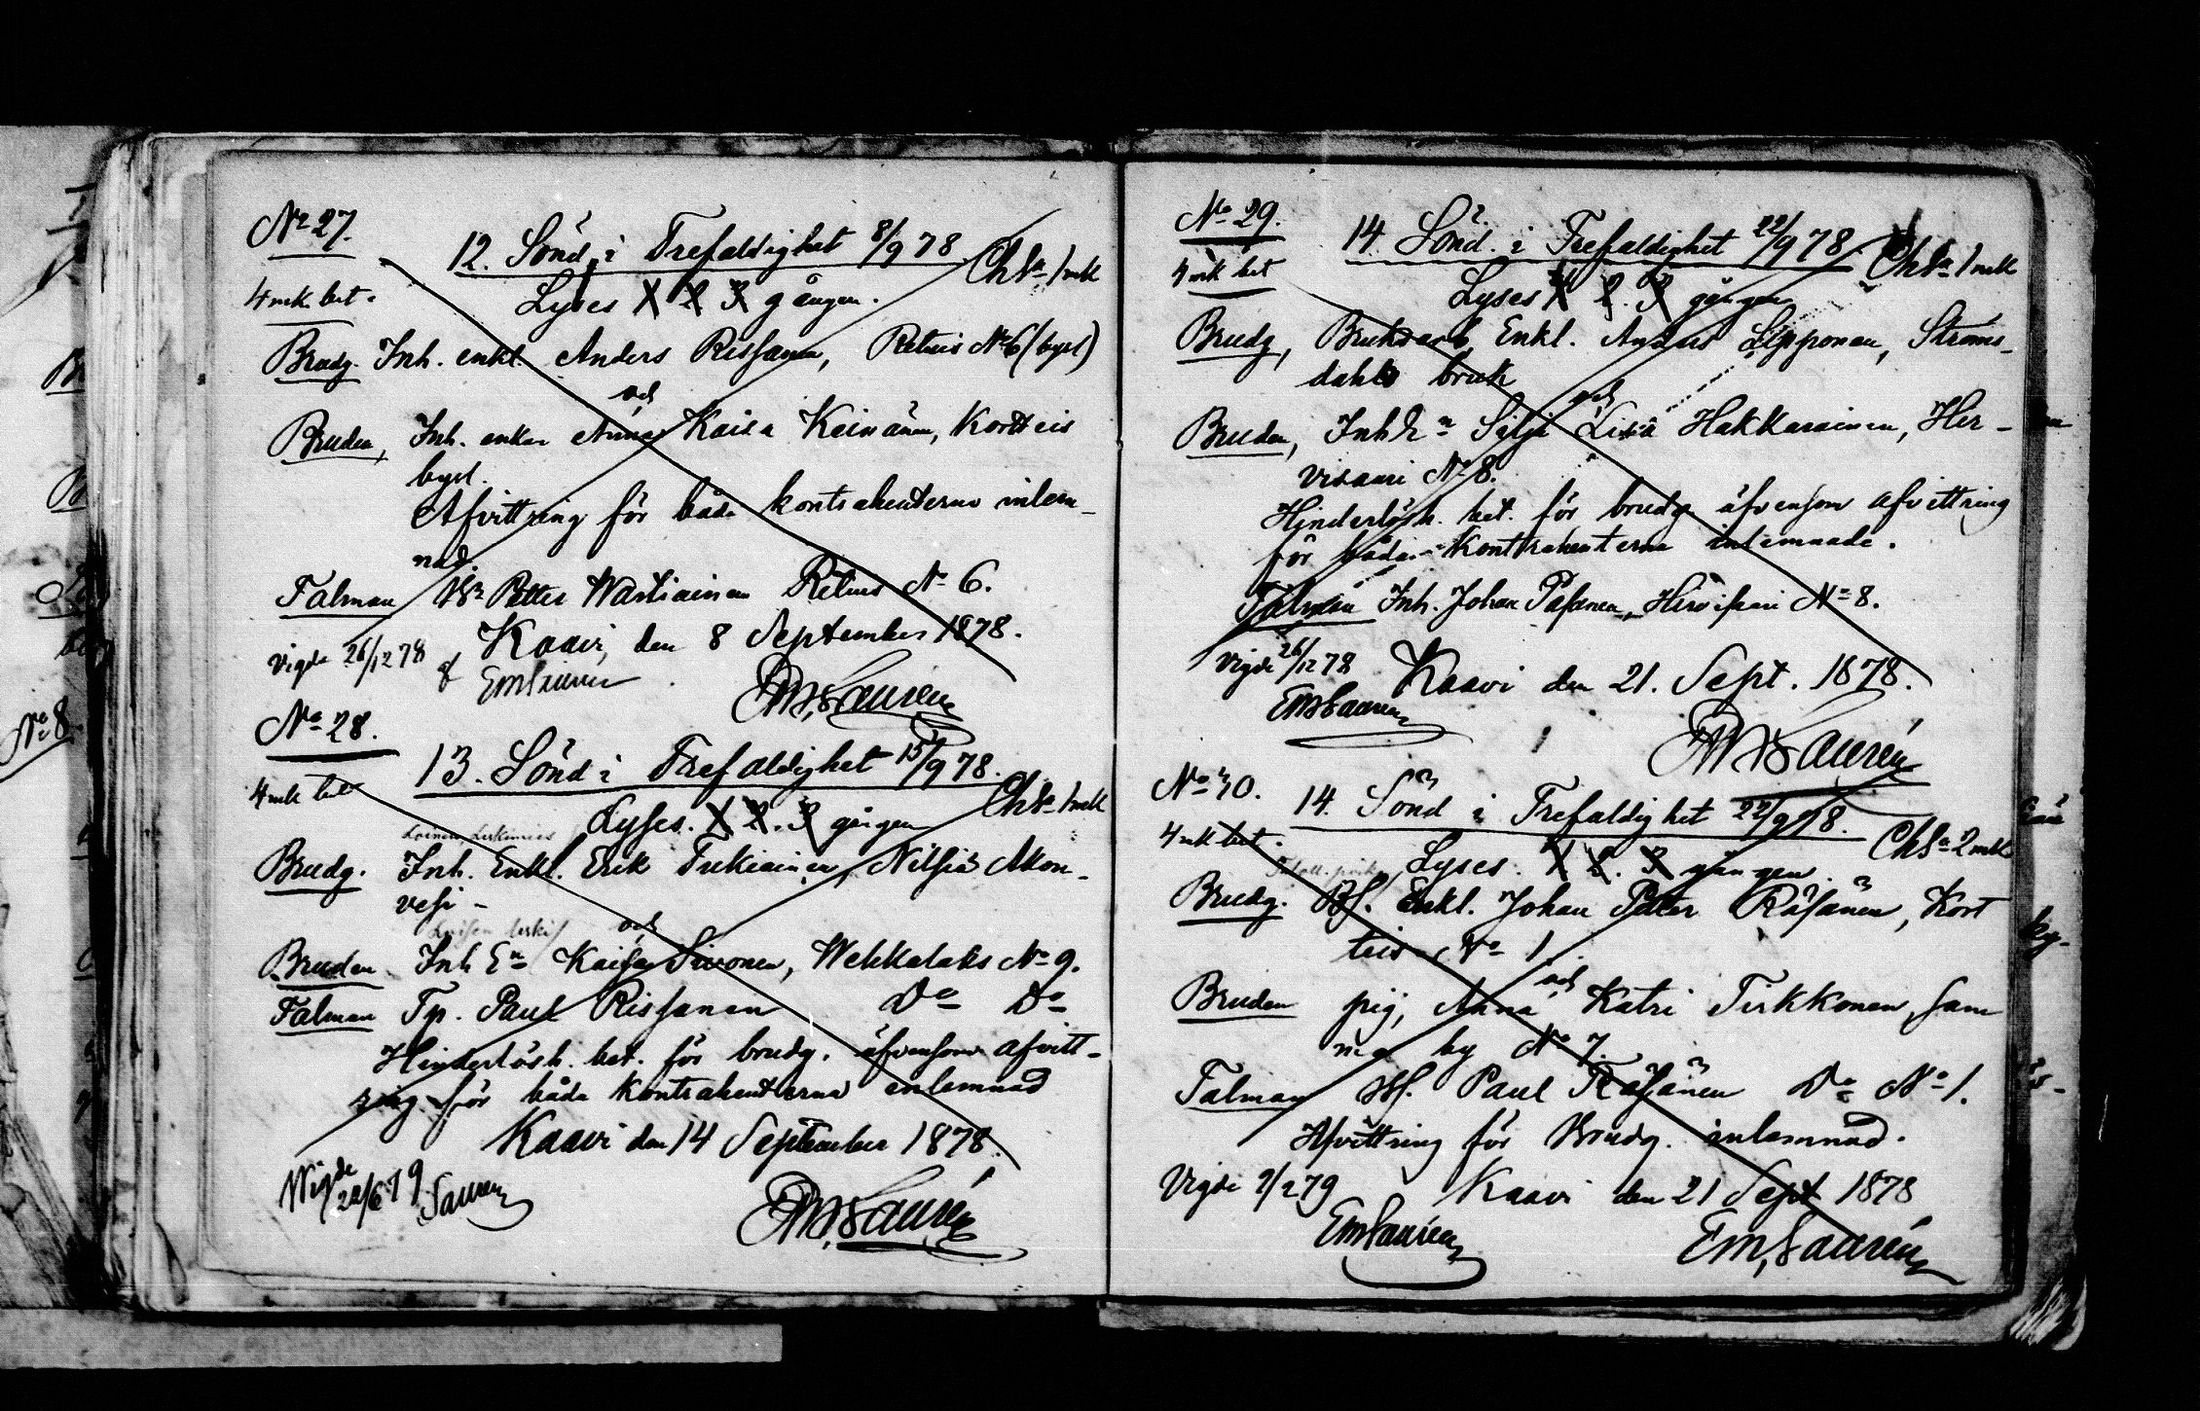 No 27.
12. Sönd. i Trefaldighet 8/9 78
Chsa 1 mk
4 mk bet.
Lyses 1 2 3 gången.
Brudg. Inh. enkl. Anders Rissanen, Retuis No 6 (byst)
och
Bruden, Inh. enkan Anna Kaisa Keinänen, Kortteis
byst.
Afvittring för båda kontrahenterna inlem-
nad.
Talman Petter Wartiainen Retuis No 6.
Kaavi, den 8 September 1878.
Vigde 26/12 78 af EmSauren
EmSaurén
No 28.
13. Sönd i Trefaldighet 15/9 78.
Chsa 1 mk
4 mk bet
Lyses. 1. 2. 3 gången
Brudg. Inh. Enkl. Erik Tukiainen, Nilsiä Akon-
vesi -
och
Bruden Inh En Kaisa Sivonen, Wehkalaks No 9.
Talman Tp. Paul Rissanen Do Do
Hinderlösh. bet. för brudg. äfvensom afvitt-
ring för båda kontrahenterna inlemnad
Kaavi den 14 September 1878.
Vigde 22/6 79 Sauren
EmSaurén
No 29.
14 Sönd. i Trefaldighet 22/9 78
Chsa 1 mk
4 mk bet
Lyses 1 2. 3 gången
Brudg, Bruksarb. Enkl. Anders Lipponen, Ströms-
dahls bruk
och
Bruden, Inh En Silja Lisa Hakkarainen, Hir-
visaari No 8.
Hinderlösh. bet. för brudg. äfvensom afvittring
för båda Kontrahenterna inlemnade.
Talman Inh. Johan Pasanen, Hirvisari No 8.
Vigde 26/12 78
Kaavi den 21. Sept. 1878.
EmSauren
EmSaurén
No 30.
14. Sönd i Trefaldighet 22/9 78.
Chsa 2 mk
4 mk bet.
Lyses. 1 2. 3 gången.
Brudg. Enkl. Johan Petter Räsänen, Kort
teis No 1
och
Bruden pig, Anna Katri Tirkkonen, sam
ma by No 7.
Talman Paul Räsänen Do No 1.
Afvittring för Brudg. inlemnad.
Vigde 2/2 79
Kaavi den 21 Sept 1878
EmSaurén
EmSaurén
No 8